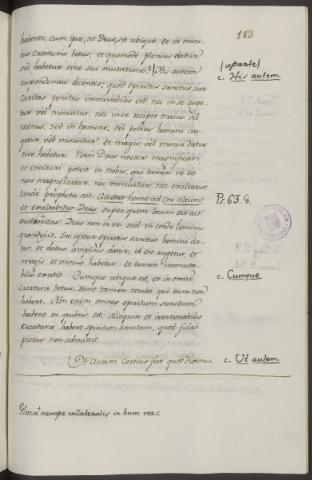 183
habenti, cum ipse, ut Deus, sit ubique, et in omni
creatura totus, et quomodo plenius datur
vel habetur sine sui mutatione? His autem
respondemus dicentes, quod Spiritus sanctus sive
Caritas penitus immutabilis est, nec in se auge-
tur vel minuitur, nec in se recipit maius vel
minus, sed in homine, vel potius homini au-
getur vel minuitur, et magis vel minus datur
sive habetur. Nam Deus noster magnificari
et exaltari potest in nobis, qui tamen in se
non magnificatur, nec minuitur, nec exaltatur.
Unde propheta ait: Accedet homo ad cor altum
et exaltabitur Deus super quem locum ait
auctoritas: Deus non in se, sed in corde hominis
grandescit. Sic igitur spiritus sanctus homini da-
tur, et datus amplius datur, id est augetur, et
magis et minus habetur, et tamen immuta-
bilis existit. Cumque ubique sit, et in omni
creatura totus, sunt tamen multi qui eum non
habent. Non enim omnes spiritum sanctum
habent in quibus est: alioquin et irrationabiles
creaturae habent spiritum sanctum, quod fidei
pietas non admittit.
Ut autem certius fiat quod diximus.
(aparte)
c. His autem
Ps. 63. 8.
c. Cumque
c. Ut autem
nempe collateralis in hunc